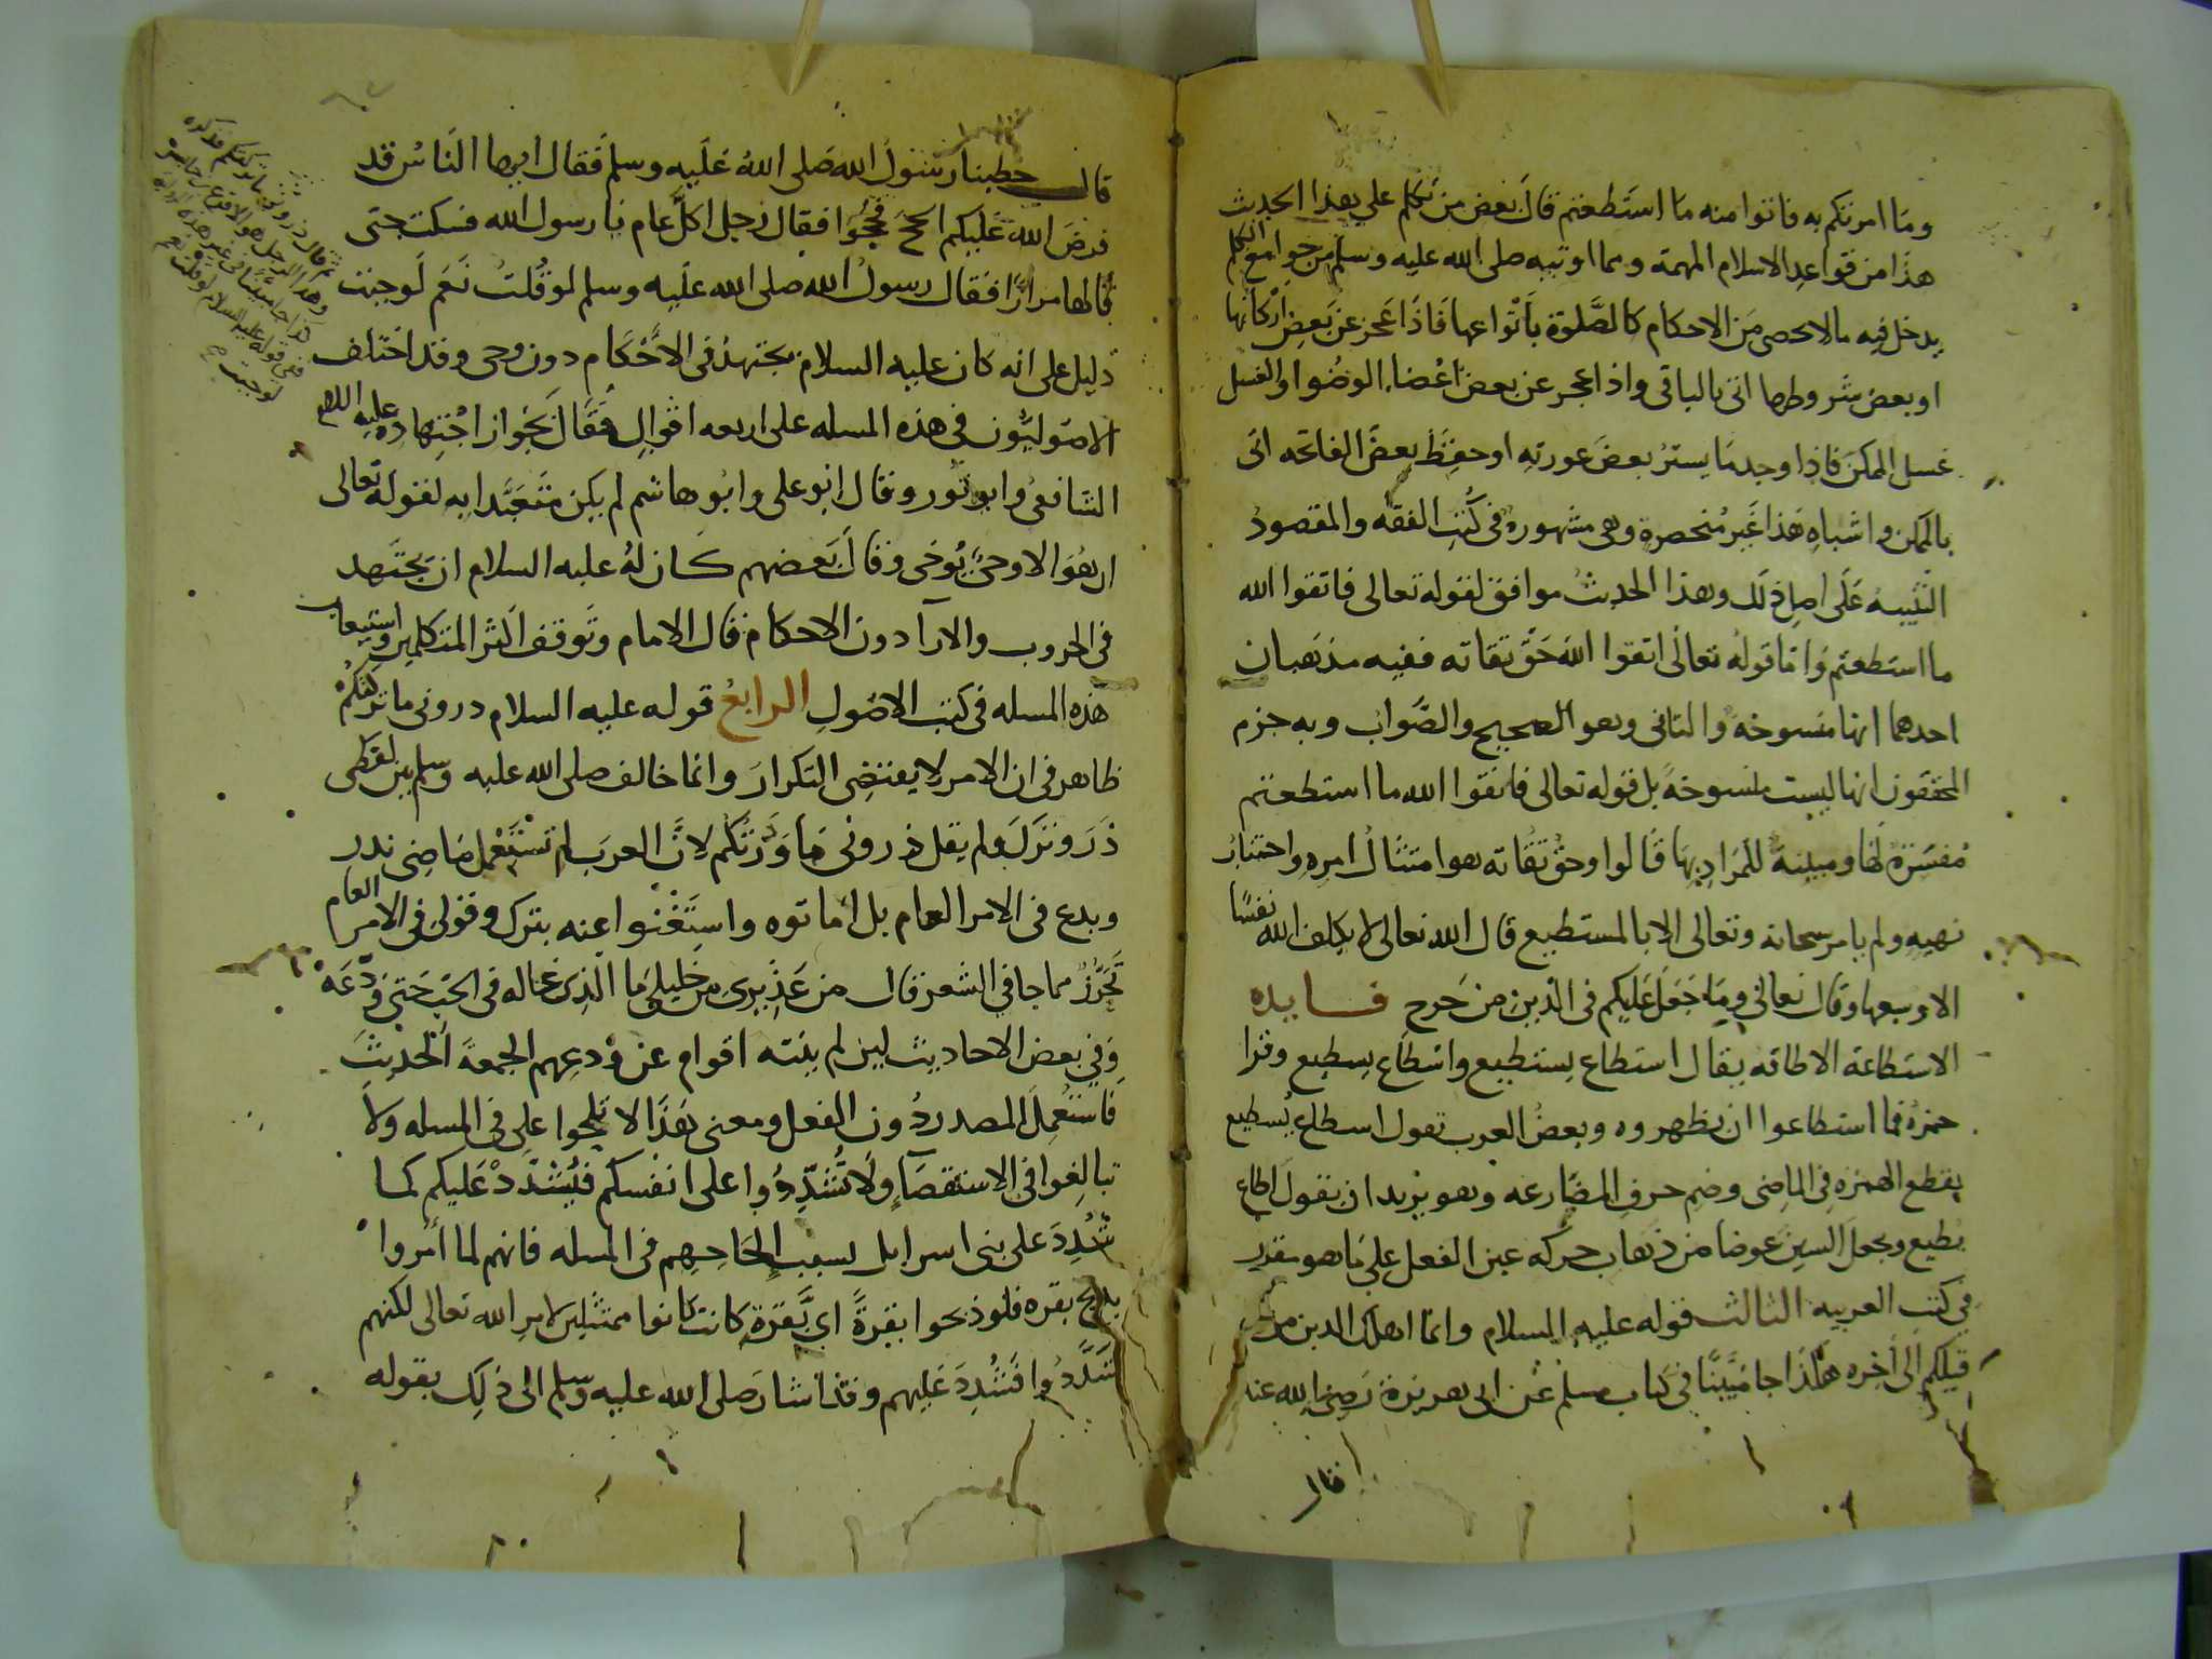 وما امرتكم به فاتوا منه ما استطعتم قال بعض من تكلم على هذا الحديث
هذا من قواعد الاسلام المهمة ومما اوتيه صلى الله عليه وسلم من جوامع الكلم
يدخل فيه مالا يحصى من الاحكام كالصلوة بأنواعها فاذا عجز عن بعض اركانها
او بعض شروطها اتى بالباقي واذا عجز عن بعض اعضاء الوضوا والغسل
غسل الممكن فاذا وجد ما يستر بعض عورته او حفظ بعض الفاتحه اتى
بالممكن واشباه هذا غير منحصرة وهى مشهورة في كتب الفقه والمقصود
التنبيه على اصل ذلك وهذا الحديث موافق لقوله تعالى فاتقوا الله
ما استطعتم واما قوله تعالى اتقوا الله حق تقاته ففيه مذهبان
احدهما انها منسوخة والثاني وهو الصحيح والصواب وبه جزم
المحققون انها ليست منسوخة بل قوله تعالى فاتقوا الله ما استطعتم
مفسرة لها ومبينة للمراد بها قالوا وحق تقاته هو امتثال امره واجتناب
نهيه ولم يامر سبحانه وتعالى الا بالمستطيع قال الله تعالى لا يكلف الله نفسًا
الا وسعها وقال تعالى وما جعل عليكم في الدين من حرج فايده
الاستطاعة الاطاقه يقال استطاع يستطيع واسطاع يسطيع وقرا
حمزة فما استطاعوا ان يظهروه وبعض العرب تقول اسطاع يُسطيع
بقطع الهمزه في الماضي وضم حرف المضارعه وهو يريد ان يقول اطاع
يطيع ويجعل السين عوضا من ذهاب حركه عين الفعل على ما هو مقرر
في كتب العربيه الثالث قوله عليه السلام وانما اهلك الذين من
قبلكم الى أخره هكذا جا مبينًا في كتاب مسلم عن ابي هريرة رضي الله عنه
قال
قال خطبنا رسول الله صلى الله عليه وسلم فقال ايها الناس قد
فرض الله عليكم الحج فحجوا فقال رجل اكل عام يا رسول الله فسكت حتى
قالها مرارًا فقال رسول الله صلى الله عليه وسلم لو قلت نعم لوجبت
دليل على انه كان عليه السلام يجتهد في الاحكام دون وحي وقد اختلف
الاصوليون في هذه المسله على اربعه اقوال فقال بجواز اجتهاده عليه السلام
الشافعي وابو ثور وقال ابو على وابو هاشم لم يكن متعبدا به لقوله تعالى
ان هو الا وحي يوحى وقال بعضهم كان له عليه السلام ان يجتهد
في الحروب والارآ دون الاحكام قال الامام وتوقف اكثر المتكلمين واستيعاب
هذه المسله في كتب الاصول الرابع قوله عليه السلام دروني ما تركتكم
ظاهر في ان الامر لا يقتضي التكرار وانما خالف صلى الله عليه وسلم بين لفظي
ذر وترك ولم يقل ذروني ما وذرتكم لان العرب لم تستعمل ماضي يدر
ويدع في الامر العام بل اماتوه واستغنوا عنه بترك وقولي في الامر العام
تحرز مما جا في الشعر قال من عذيري من خليلي ما الذي غاله في الحب حتى ودعه
وفي بعض الاحاديث لين لم ينته اقوام عن ودعهم الجمعة الحديث
فاستعمل المصدر دون الفعل ومعنى هذا لا تلحوا علي في المسله ولا
تبالغوا في الاستقصآ ولا تشددوا على انفسكم فيشدد عليكم كما
شدد على بنى اسرايل بسبب الحاحهم في المسله فانهم لما أمروا
بذبح بقره فلو ذبحوا بقرةً اي بقرة كانت كانوا ممتثلين لامر الله تعالى لكنهم
شددوا فشدد عليهم وقد اشار صلى الله عليه وسلم الى ذلك بقوله
ثم قال ذروني ما تركتكم
وهذا الرجل هو الاقرع بن حابس
كذا جا مبينا في غير هذه الرواية
ففي قوله عليه السلام لو قلت نعم
لوجبت